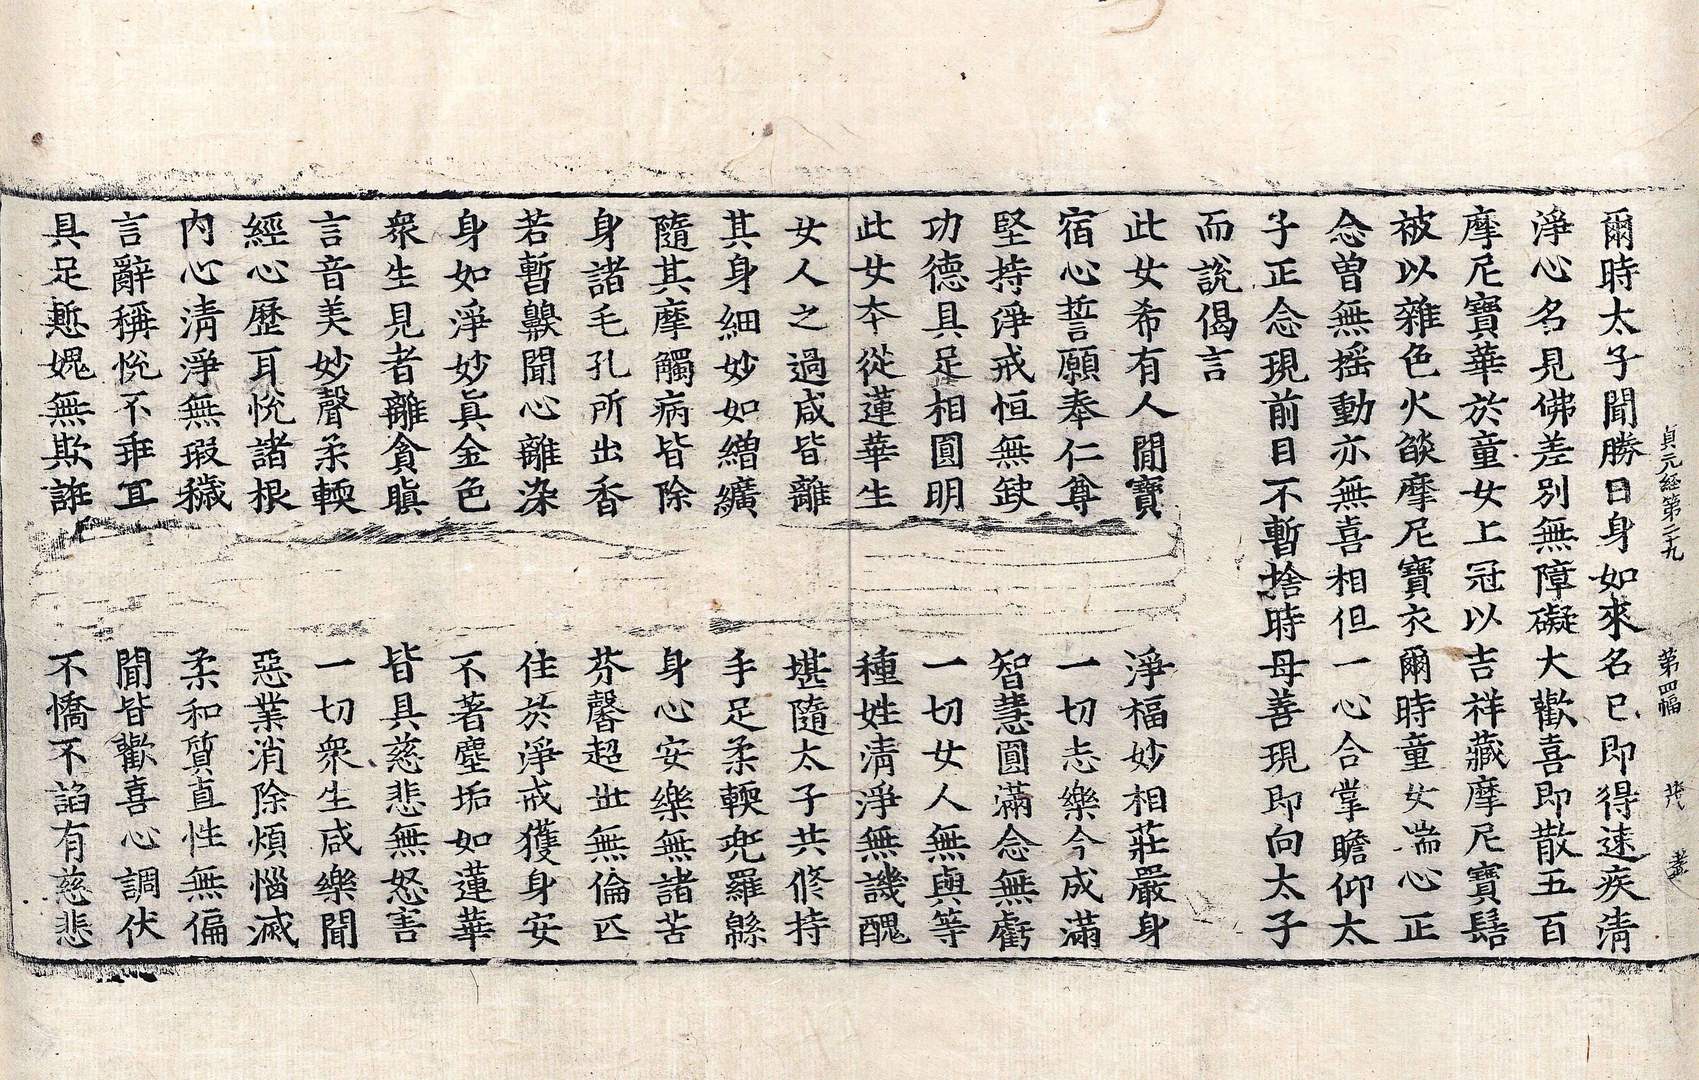 貞元經第二十九　第四幅　茂
爾時太子聞勝日身如來名已即得速疾清
淨心名見佛差別無障礙大歡喜即散五百
摩尼寶華於童女上冠以吉祥藏摩尼寶髻
被以雜色火燄摩尼寶衣爾時童女端心正
念曾無搖動亦無喜相但一心合掌瞻仰太
子正念現前目不暫捨時母善現即向太子
而說偈言
此女希有人間寶　淨福妙相莊嚴身
宿心誓願奉仁尊　一切志樂今成滿
堅持淨戒恒無缺　智慧圓滿念無虧
功德具足相圓明　一切女人無與等
此女本從蓮華生　種姓清淨無譏醜
女人之過咸皆離　堪隨太子共修持
其身細妙如繒纊　手足柔輭兜羅緜
隨其摩觸病皆除　身心安樂無諸苦
身諸毛孔所出香　芬馨超世無倫匹
若暫齅聞心離染　住於淨戒獲身安
身如淨妙真金色　不著塵垢如蓮華
衆生見者離貪瞋　皆具慈悲無怒害
言音美妙聲柔輭　一切衆生咸樂聞
經心歷耳悅諸根　惡業消除煩惱滅
內心清淨無瑕穢　柔和質直性無偏
言辭稱悅不乖宜　聞皆歡喜心調伏
具足慙媿無欺誑　不憍不諂有慈悲